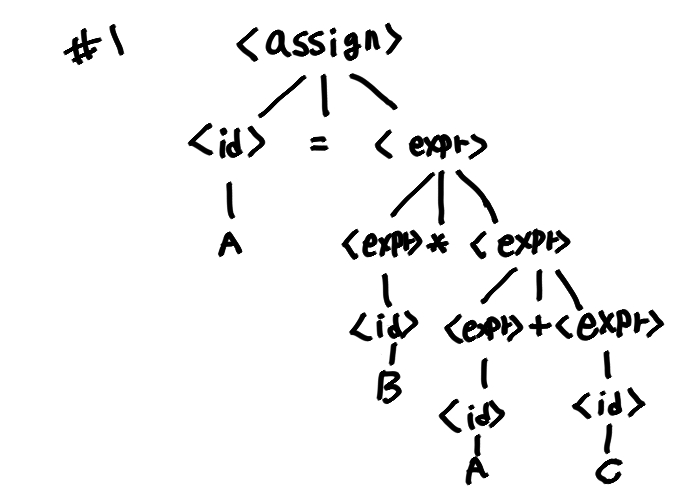 #1 <assign>
<id> = <expr>
A <expr> * <expr>
<id> <expr> + <expr>
B <id> <id>
A C